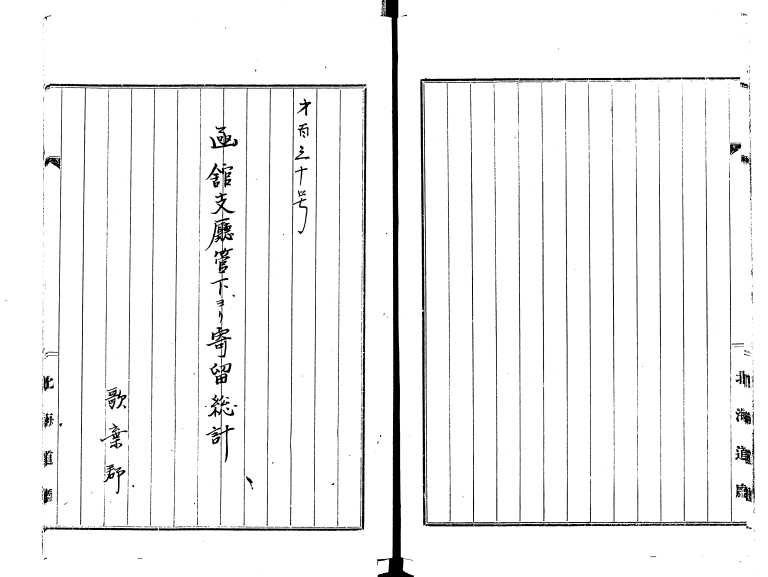 北海道廳
才百三十号
函館支廳管下ヨリ寄留総計
歌棄郡
北海道廳